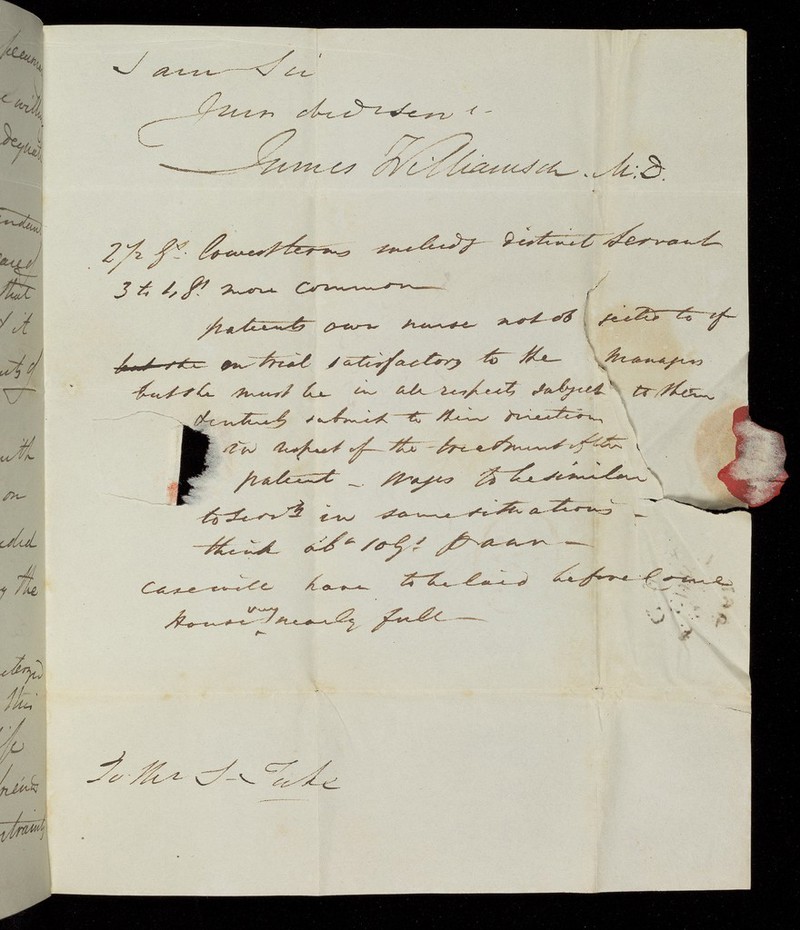 I am Sir
Your obed serv
James Williamson. M.D.
2 1/2 Gs. lowest terms includg distinct Servant
3 to 4 Gs. more common
patients own nurse not ob jected to if
but she on trial satisfactory to the Managers
but she must be in all respects subject to them
submit to their direction
in respect of the treatment of the
patient - Wages to be similar
to Servts in same situations -
think abt 10 Gs. P ann -
case will have to be laid before Come
House very nearly full -
To Mr S- Tuke